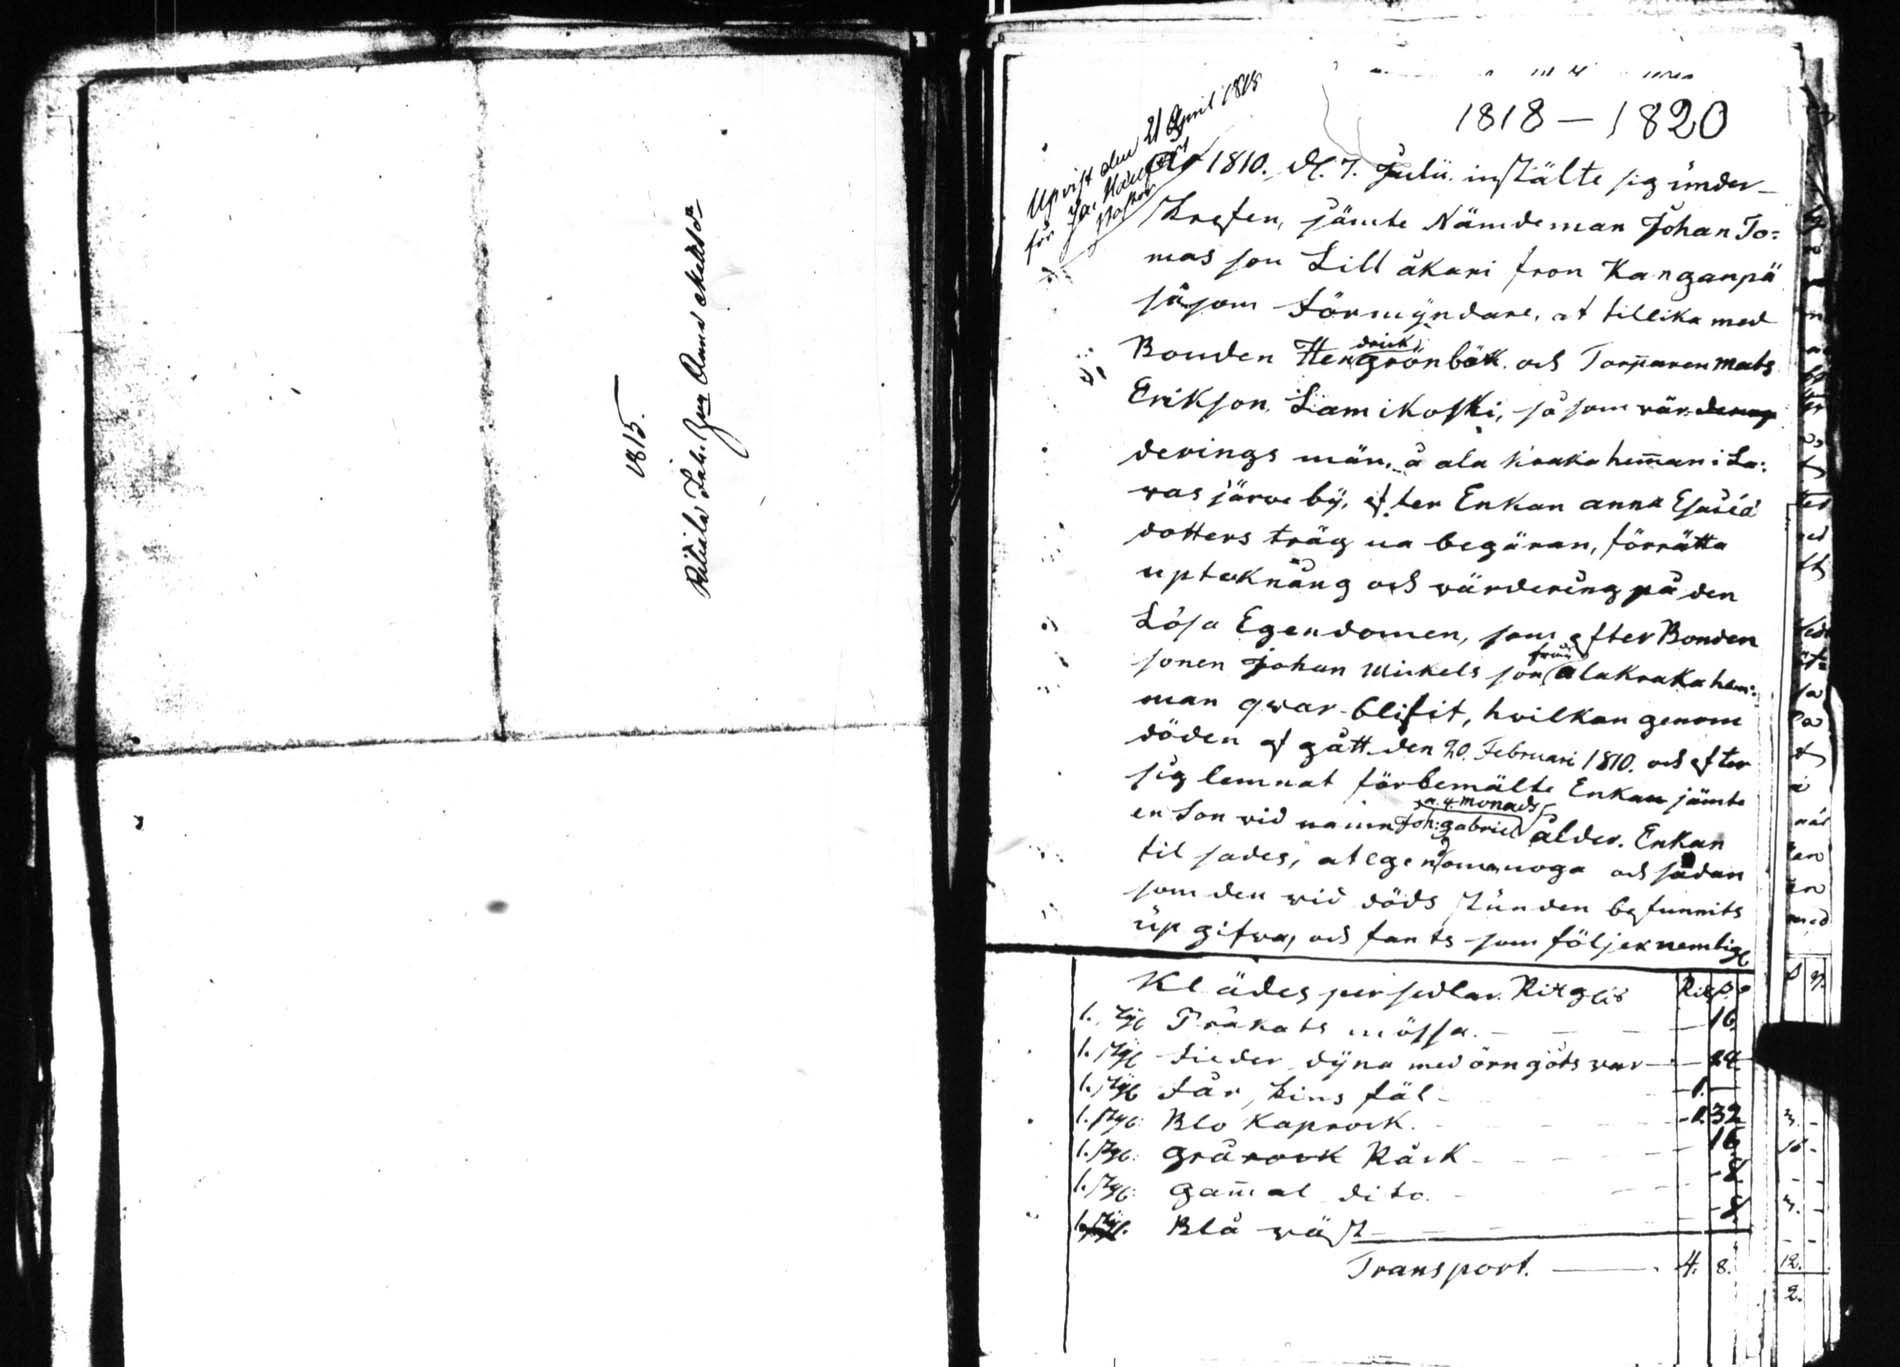 1815.
1818 – 1820
Upvist den 21 April 1815
för
1810. d. 7. Julii instälte sig under-
skrefen, jämte Nämdeman Johan To-
mas son Lill åkari fron Kanganpä
såsom Förmyndare, at tillika med
Bonden Hendrick grönbäk och Torparen mats
Erikson Lamikoski, så som vär
derings män, å ala kraka hemman i La-
was järve by, efter Enkan anna Esaiä
dotters trägna begäran, förrätta
upteknäng och värdering på den
Lösa Egendomen, som efter Bonden
sonen Johan Mickels son från alakraka hem-
man qwar-blifit, hvilkan genom
döden af gått den 20. Februari 1810. och efter
sig lemnat förbemälte Enkan jämte
en Son vid namn Joh: gabriel a 4 monads ålder. Enkan
til sades, at egendomen noga och sådan
som den vid döds stunden befunnits
up gifva, och fants som följer nemligl
Klädes persedlar. Rixglds Rd s
1. styk Pråkats mössa. — 16
1. styk Fieder dyna med örngåts var — 24
1. styk Får skins fäl — 1. —
1. styk Blo Kaprock. — 1. 32
1. styk grårock Råck — 16
1. styk gamal dito. — 8
1. styk Blå väst — 8
Transport. — 4. 8.